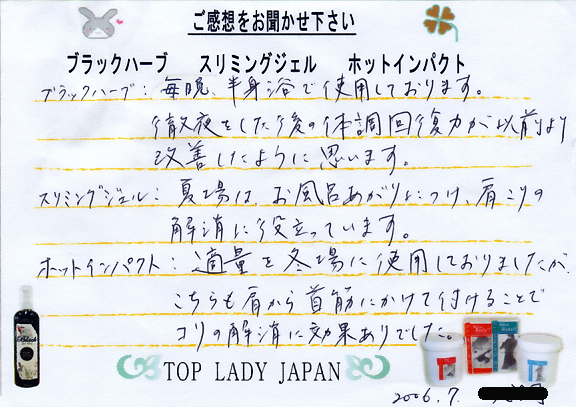 ご感想をお聞かせ下さい
ブラックハーブ スリミングジェル ホットインパクト
ブラックハーブ：毎晩、半身浴で使用しております。
徹夜をした後の体調回復力が以前より
改善したように思います。
スリミングジェル：夏場は、お風呂あがりにつけ、肩こりの
解消に役立っています。
ホットインパクト：適量を冬場に使用しておりましたが、
こちらも肩から首筋にかけて付けることで
コリの解消に効果ありでした。
TOP LADY JAPAN
2006.7.